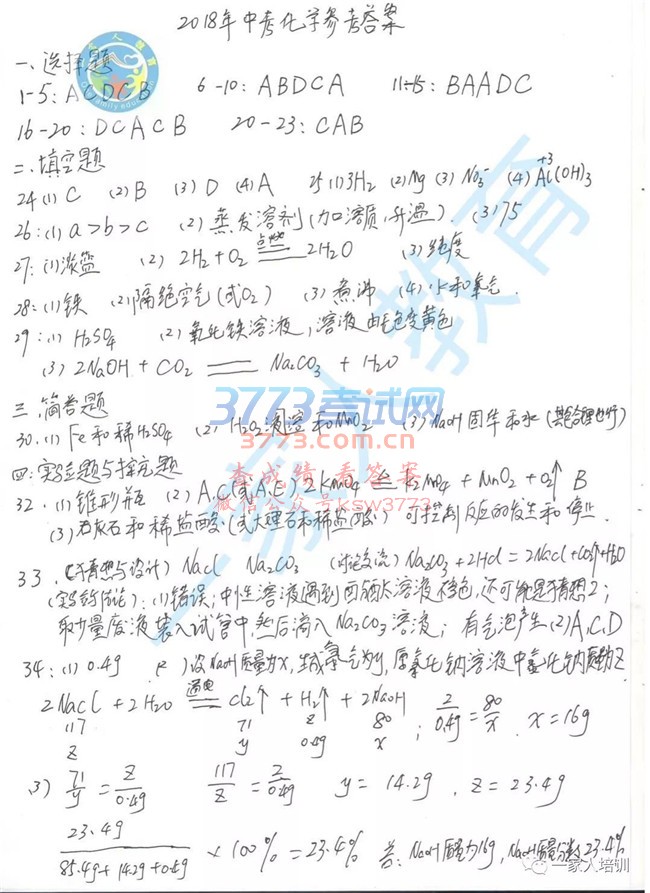 2018年中考化学参考答案
一、选择题
1-5: ACDCB 6-10: ABDCA 11-15: BAADC
16-20: DCACB 20-23: CAB
二、填空题
24(1) C (2) B (3) D (4) A 25(1) 3H₂ (2) Mg (3) NO₃⁻ (4) Al(OH)₃ +3
26: (1) a>b>c (2) 蒸发溶剂(加溶质,升温). (3) 75
27: (1) 淡蓝 (2) 2H₂+O₂ ══点燃══ 2H₂O (3) 纯度
28: (1) 铁 (2) 隔绝空气(或O₂) (3) 煮沸 (4) 水和氧气.
29: (1) H₂SO₄ (2) 氧化铁溶液,溶液由无色变黄色
(3) 2NaOH + CO₂ ══ Na₂CO₃ + H₂O
三.简答题
30.(1) Fe和稀H₂SO₄ (2) H₂O₂溶液和MnO₂ (3) NaOH固体和水(其他合理也行)
四:实验题与探究题
32.(1) 锥形瓶 (2) A.C(或A.E) 2KMnO₄ ══ K₂MnO₄ + MnO₂ + O₂↑ B
(3) 石灰石和稀盐酸(或大理石和稀盐酸) 可控制反应的发生和停止.
33.(猜想与设计) NaCl Na₂CO₃ (讨论交流) Na₂CO₃+2HCl=2NaCl+CO₂↑+H₂O
(实验结论): (1) 错误;中性溶液遇到酚酞溶液不变色,还可能是猜想2;
取少量废液装入试管中,然后滴入Na₂CO₃溶液;有气泡产生(2)A,C,D
34: (1) 0.4g (2) 设NaOH质量为x,生成氯气为y,原氯化钠溶液中氯化钠质量为z
2NaCl + 2H₂O ══通电══ Cl₂↑ + H₂↑ + 2NaOH
117 71 2 80
z y 0.4g x ; 2/0.4g = 80/x . x = 16g
(3) 71/y = 2/0.4g 117/z = 2/0.4g y = 14.2g . z = 23.4g
23.4g / 85.4g+14.2g+0.4g × 100% = 23.4% 答:NaOH质量为16g, 质量分数23.4%
一家人教育
Family edu
3773考试网
3773.com.cn
查成绩看答案
微信公众号ksw3773
一家人培训